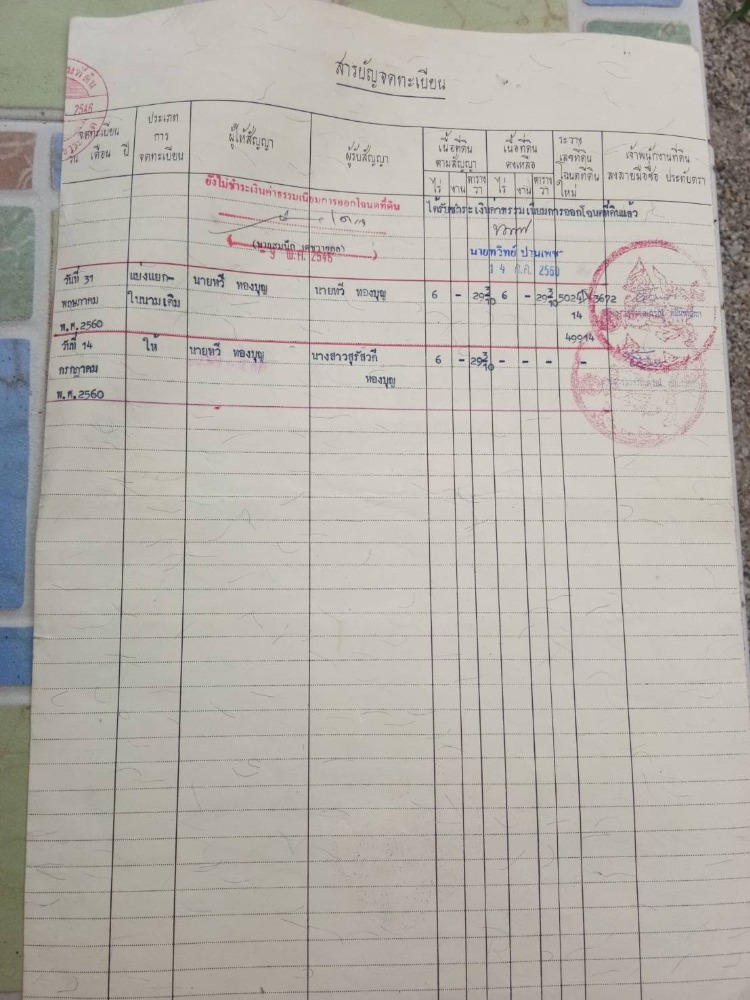 สารบัญจดทะเบียน
จดทะเบียน
วัน เดือน ปี
ประเภท
การ
จดทะเบียน
ผู้ให้สัญญา
ผู้รับสัญญา
เนื้อที่ดิน
ตามสัญญา
ไร่ งาน ตาราง
วา
เนื้อที่ดิน
คงเหลือ
ไร่ งาน ตาราง
วา
ระวาง
เลขที่ดิน
โฉนดที่ดิน
ใหม่
เจ้าพนักงานที่ดิน
ลงลายมือชื่อ ประทับตรา
2546
ยังไม่ชำระเงินค่าธรรมเนียมการออกโฉนดที่ดิน
พ.ศ. 2546
ได้รับชำระเงินค่าธรรมเนียมการออกโฉนดที่ดินแล้ว
นายทวิทย์ ปานเพชร
วันที่ 31 แบ่งแยก- นายทวี ทองบุญ นายทวี ทองบุญ 6 - 29 3/10 6 - 29 3/10 5024 3672
พฤษภาคม ในนามเดิม 14
พ.ศ. 2560 49914
วันที่ 14 ให้ นายทวี ทองบุญ นางสาวสุรัสวดี 6 - 29 3/10 - - - -
กรกฎาคม ทองบุญ
พ.ศ. 2560